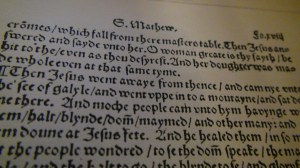 S. Mathew.
cromes/ which fall from there masters table. Then Jesus ans
swered and sayde vnto her. O woman great is thy fayth/ be
hit to the/ even as thou desyrest. And her doughter was ma
de whole even at that same tyme.
Then Jesus went awaye from thence/ and cam nye vnto
the see of galyle/ and went vppe in to a mountayne/ and sat do
ne there. And moche people cam vnto hym havynge w
them/ halt/ blynde/ dom/ maymed/ and other many: and
em doune at Jesus fete. And he healed them/ in so m
the people wondred/ to se the dom speake/ the